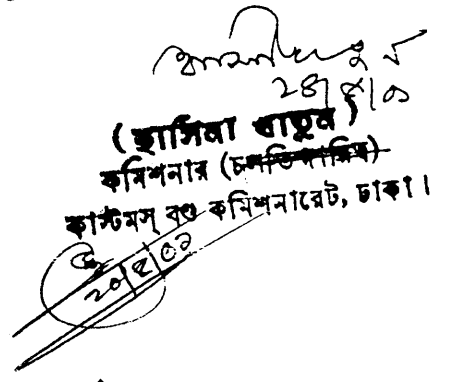 ২৪/৫/০১
(হাসিনা খাতুন)
কমিশনার (চলতি দায়িত্ব)
কাস্টমস্ বণ্ড কমিশনারেট, ঢাকা।